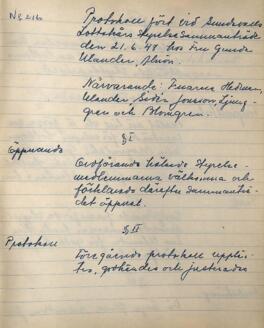 Nr 216.
Protokoll fört vid Sundsvalls
Lottakårs styrelsesammanträde
den 21.6.48 hos fru Gunda
Ulander, Alnön.
Närvarande: Fruarna Hedmer,
Ulander, Sidén, Jonsson, Ljung-
gren och Blomgren.
§ I
Öppnande
Ordförande hälsade styrelse-
medlemmarna välkomna och
förklarade därefter sammanträ-
det öppnat.
§ II
Protokoll
Föregående protokoll upplä-
stes, godkändes och justerades